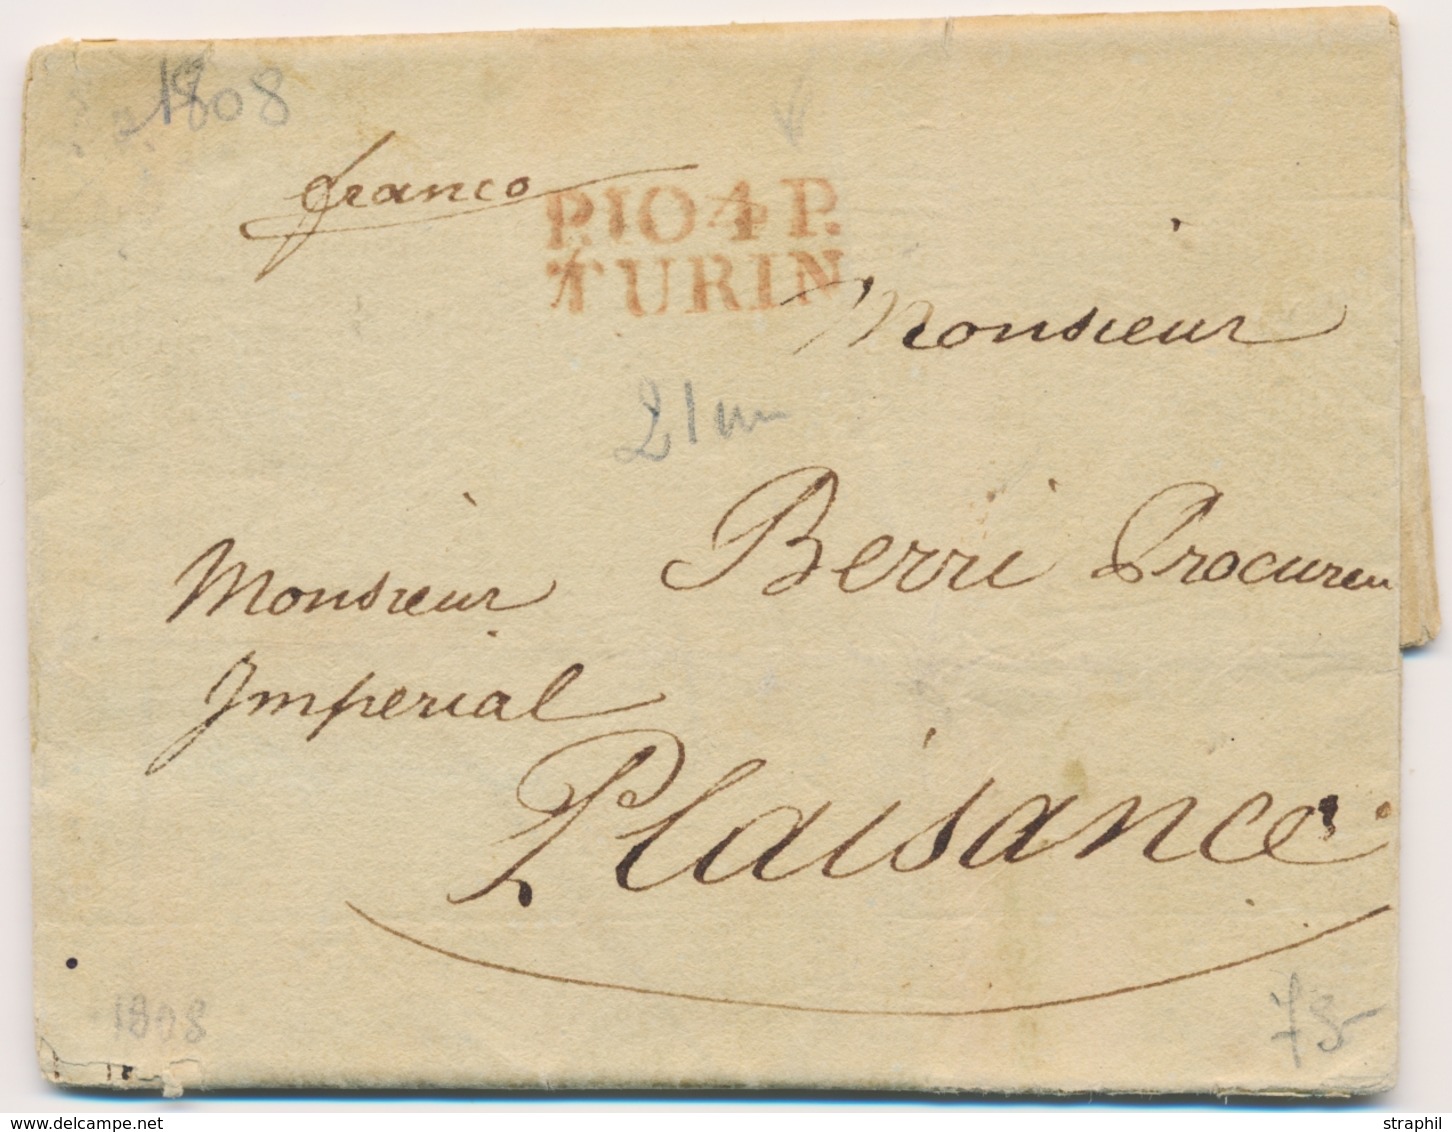 1808
franco
P.104P.
TURIN
Monsieur
21 m
Monsieur Berri Procureu
Imperial
Plaisance
1808
75-
delcampe.net
straphil